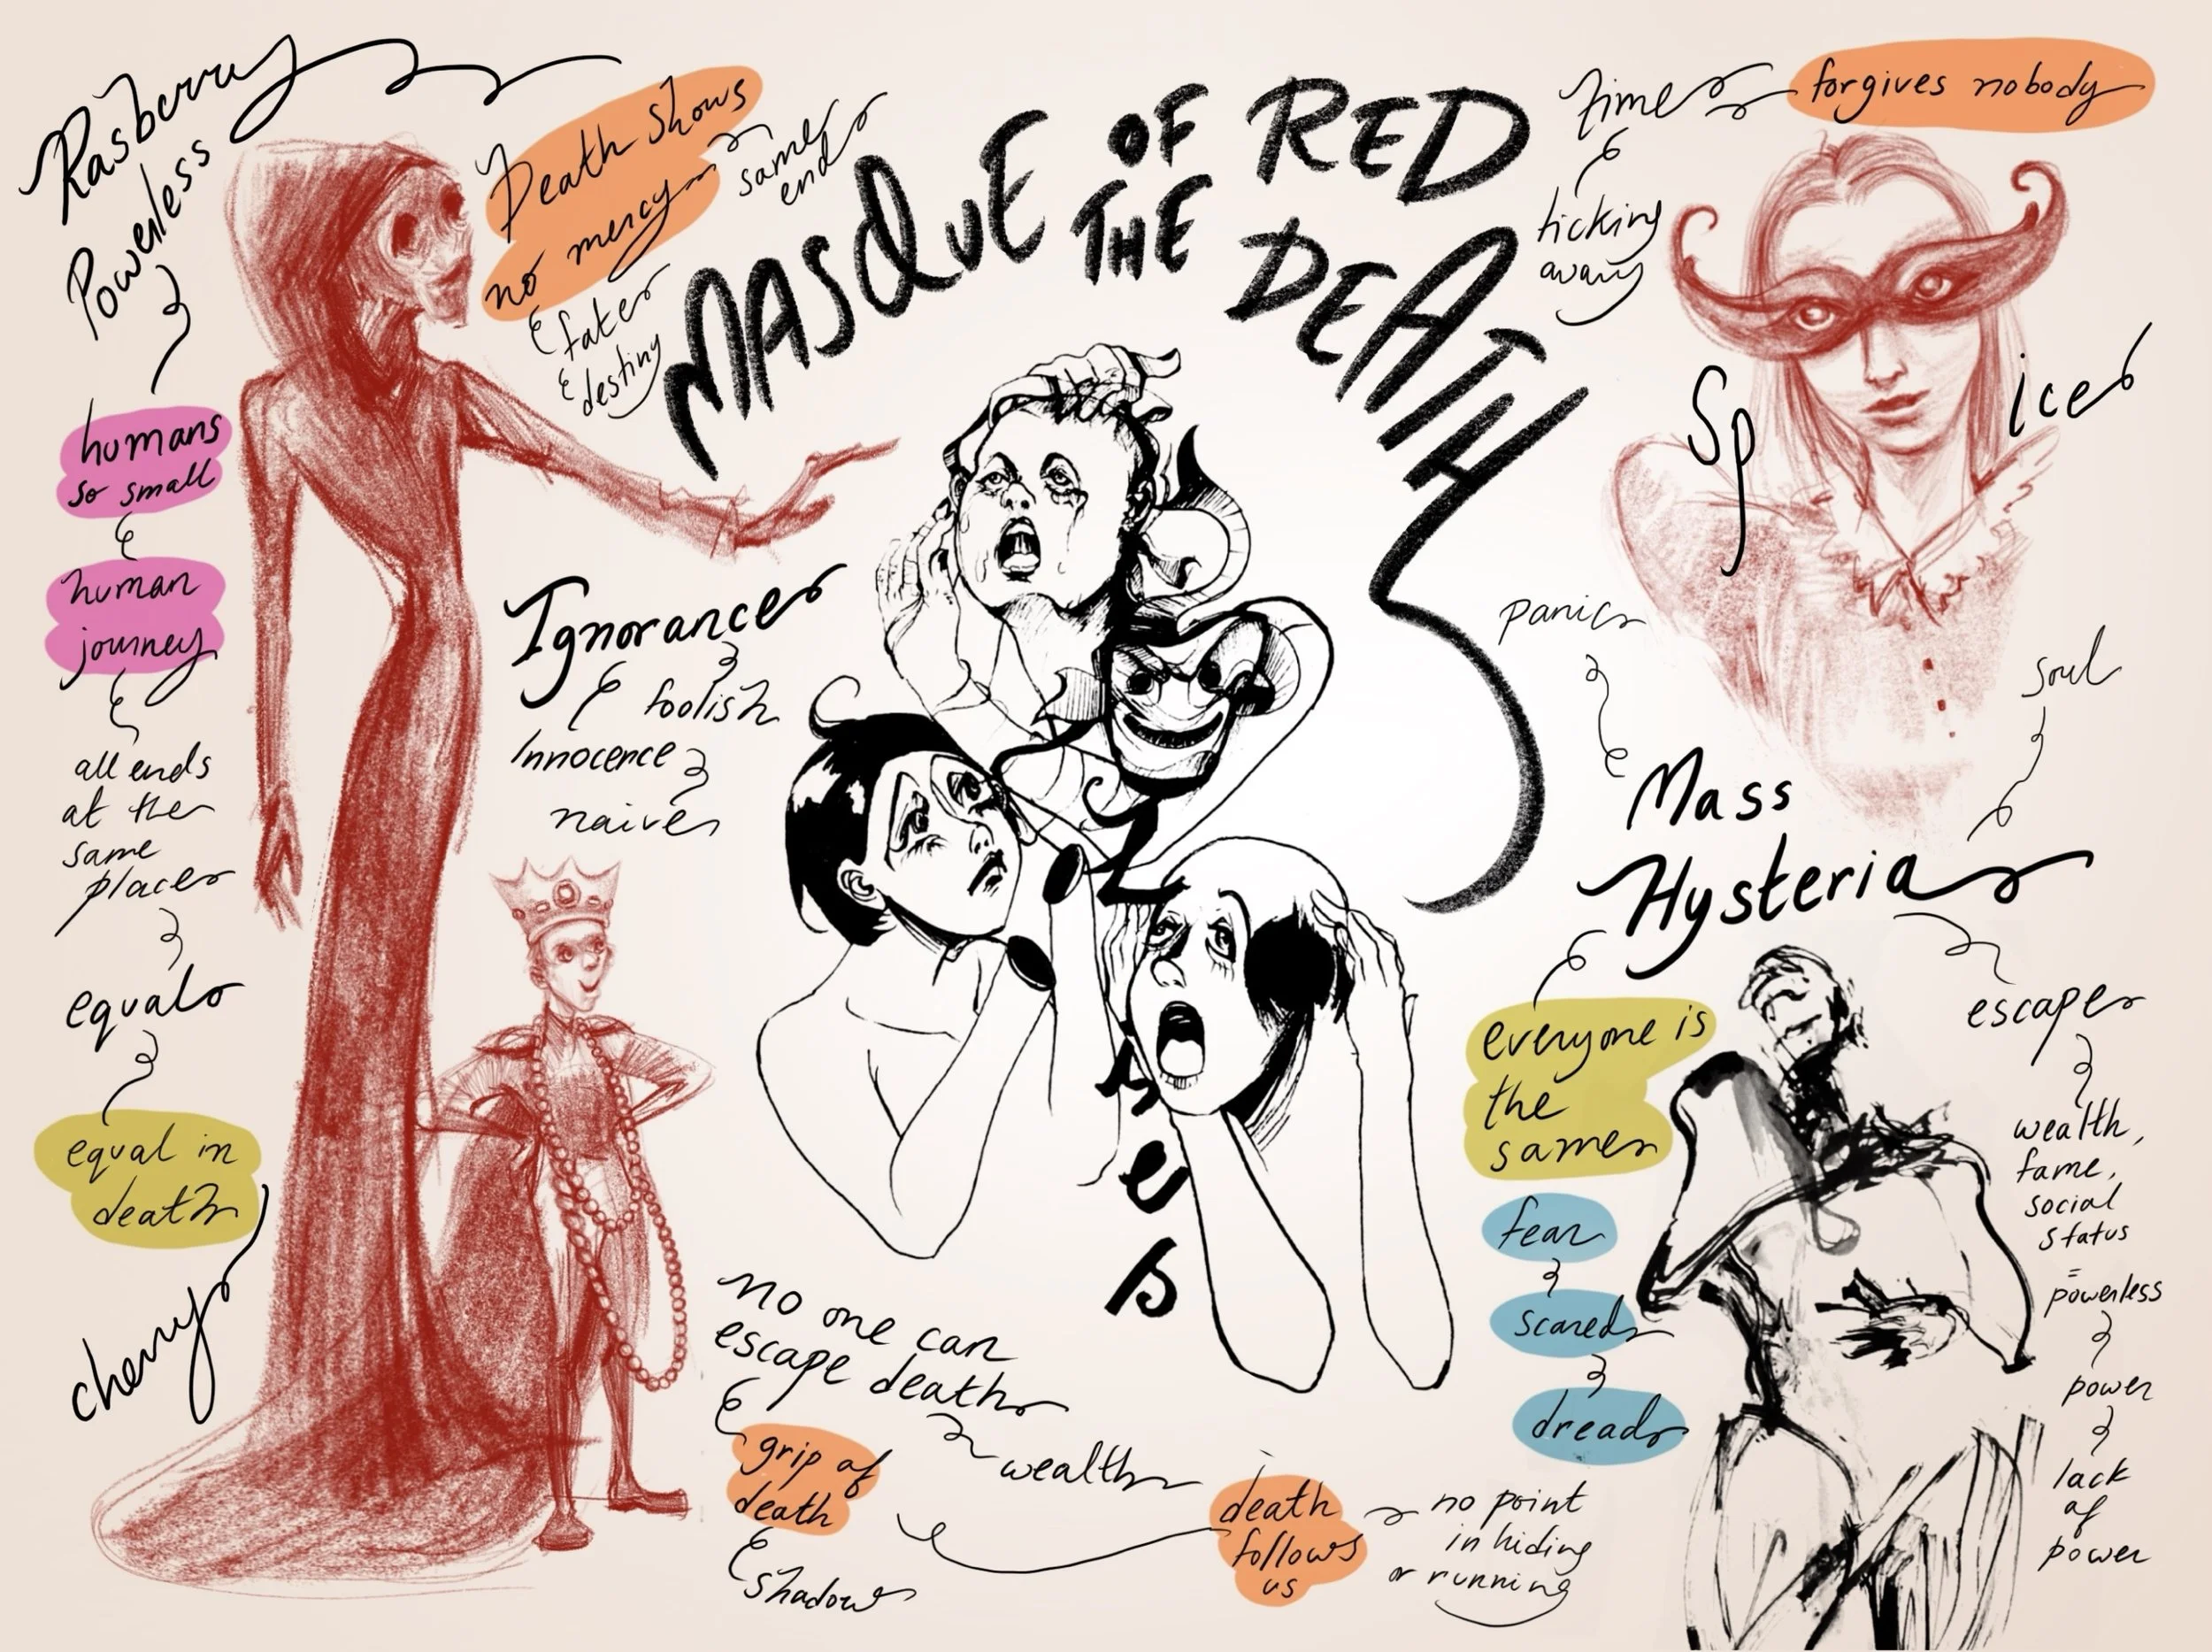 Rasberry
Powerless
humans
so small
human
journey
all ends
at the
same
place
equal
equal in
death
cherry
Death shows
no mercy
same
end
fate
destiny
MASQUE OF THE RED DEATH
Time
forgives nobody
ticking
away
Spice
Ignorance
foolish
Innocence
naive
panic
soul
Mass
Hysteria
everyone is
the
same
fear
scared
dread
escape
wealth,
fame,
social
status
=
powerless
power
lack
of
power
no one can
escape death
grip of
death
shadow
wealth
death
follows
us
no point
in hiding
or running